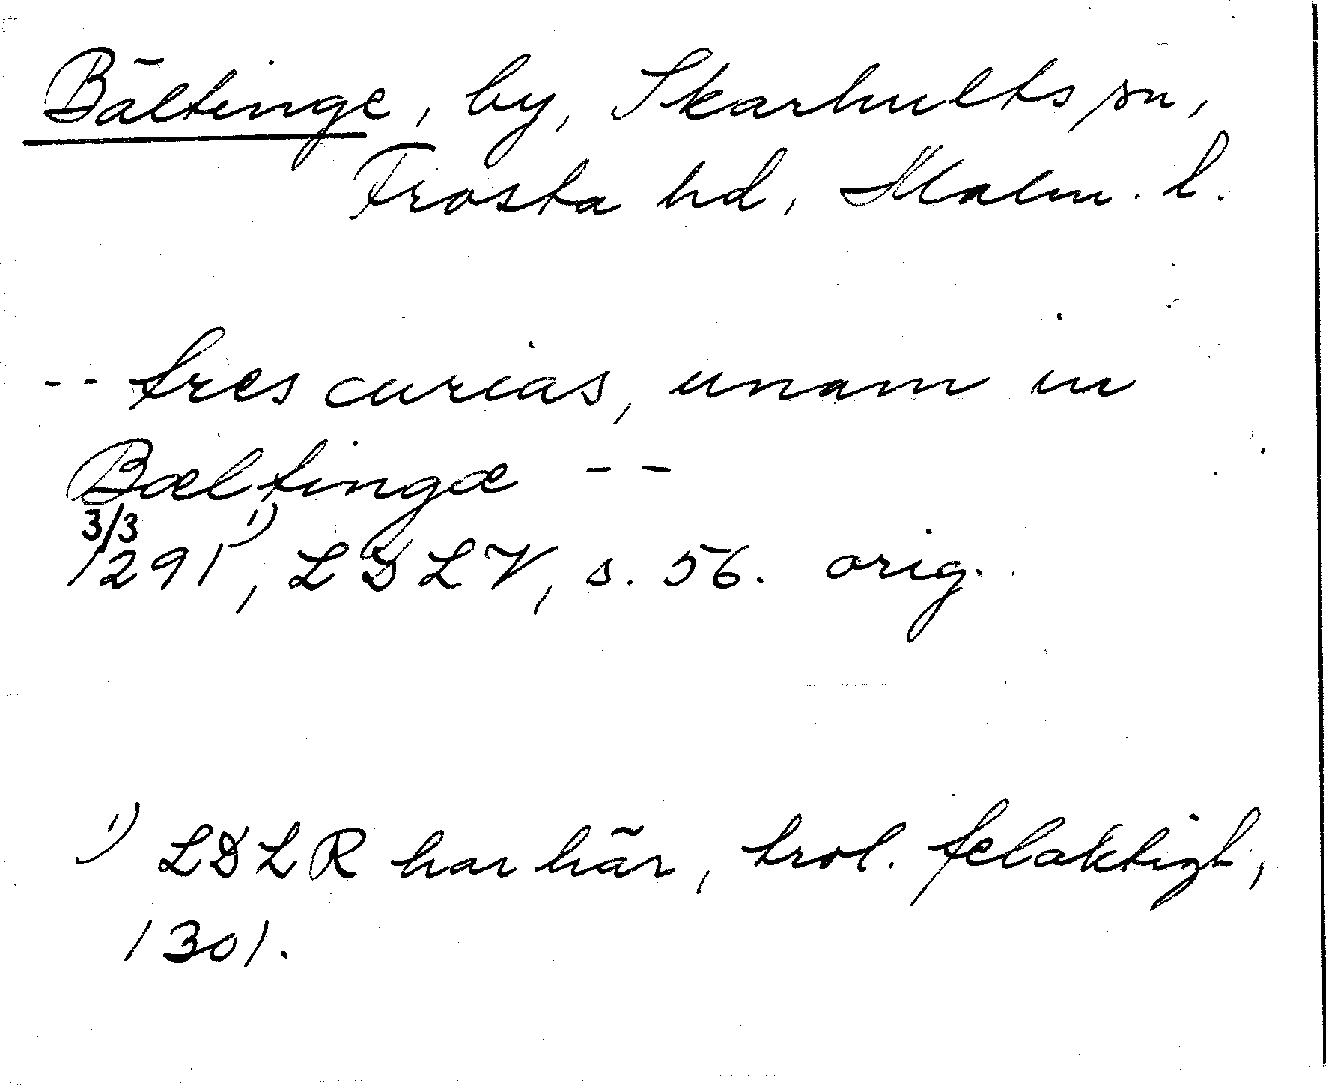 Bältinge, by, Skarhults sn,
Frosta hd, Malm. l.
-- tres curias, unam in
Bæltingæ --
3/3
1291 1), LDLV, s. 56. orig.
1) LDLR har här, trol. felaktigt,
1301.